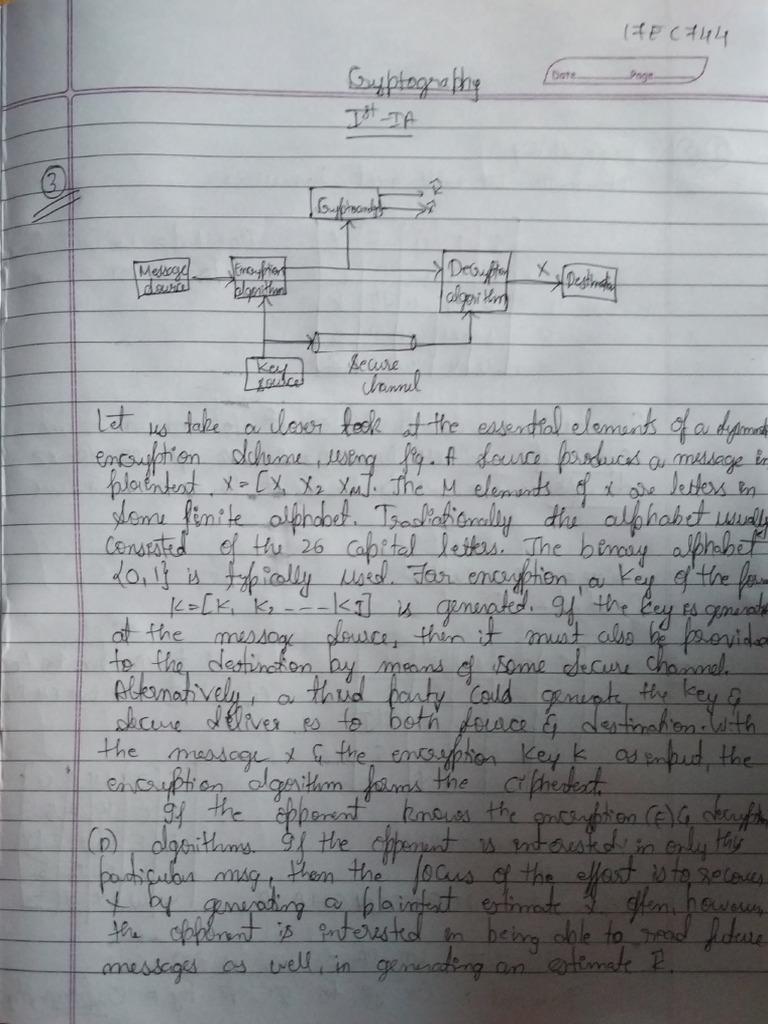 17EC744
Date Page
Cryptography
Ist - IA
3
Cryptoanalyst K̂
X̂
Message Encryption Decryption X
source algorithm algorithm
Key Secure
source channel
Let us take a closer look at the essential elements of a
encryption scheme, using fig. A source produces a message in
plaintext, X=[X1 X2 XM]. The M elements of x are letters in
some finite alphabet. Traditionally the alphabet usually
consisted of the 26 capital letters. The binary alphabet
{0,1} is typically used. For encryption, a key of the form
K=[K1 K2 ---- KJ] is generated. If the key is generated
at the message source, then it must also be provided
to the destination by means of some secure channel.
Alternatively, a third party could generate the key &
secure deliver es to both source & destination. With
the message X & the encryption key K as input, the
encryption algorithm forms the ciphertext.
If the opponent knows the encryption (E) & decryption
(D) algorithms. If the opponent is interested in only this
particular msg, then the focus of the effort is to recover
X by generating a plaintext estimate X̂ often, however,
the opponent is interested in being able to read future
messages as well, in generating an estimate K̂.